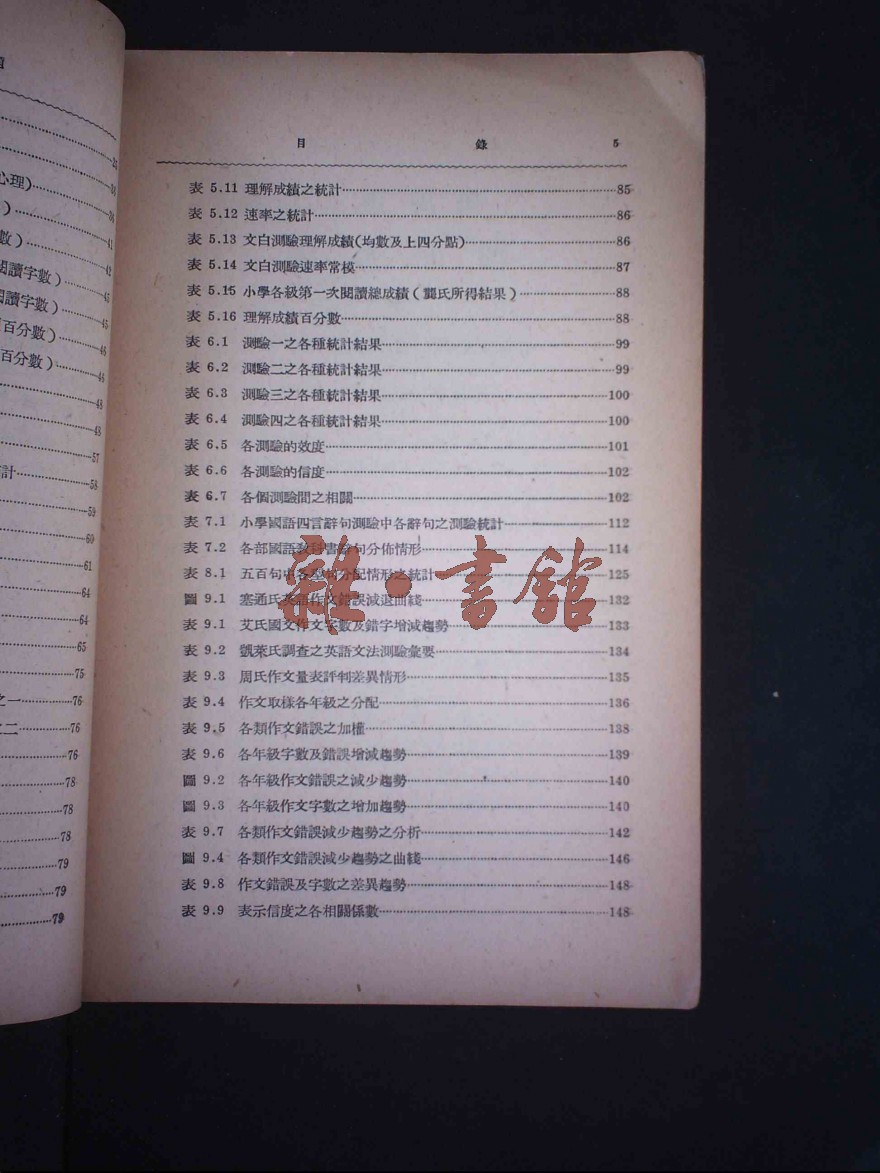 目 錄 5
表 5.11 理解成績之統計 85
表 5.12 速率之統計 86
表 5.13 文白測驗理解成績(均數及上四分點) 86
表 5.14 文白測驗速率常模 87
表 5.15 小學各級第一次閱讀總成績(龔氏所得結果) 88
表 5.16 理解成績百分數 88
表 6.1 測驗一之各種統計結果 99
表 6.2 測驗二之各種統計結果 99
表 6.3 測驗三之各種統計結果 100
表 6.4 測驗四之各種統計結果 100
表 6.5 各測驗的效度 101
表 6.6 各測驗的信度 102
表 6.7 各個測驗間之相關 102
表 7.1 小學國語四言辭句測驗中各辭句之測驗統計 112
表 7.2 各部國語教科書辭句分佈情形 114
表 8.1 五百句中各型句分配情形之統計 125
圖 9.1 塞通氏英語作文錯誤減退曲綫 132
表 9.1 艾氏國文作文字數及錯字增減趨勢 133
表 9.2 凱萊氏調查之英語文法測驗彙要 134
表 9.3 周氏作文量表評判差異情形 135
表 9.4 作文取樣各年級之分配 136
表 9.5 各類作文錯誤之加權 138
表 9.6 各年級字數及錯誤增減趨勢 139
圖 9.2 各年級作文錯誤之減少趨勢 140
圖 9.3 各年級作文字數之增加趨勢 140
表 9.7 各類作文錯誤減少趨勢之分析 142
圖 9.4 各類作文錯誤減少趨勢之曲綫 146
表 9.8 作文錯誤及字數之差異趨勢 148
表 9.9 表示信度之各相關係數 148
雜·書館